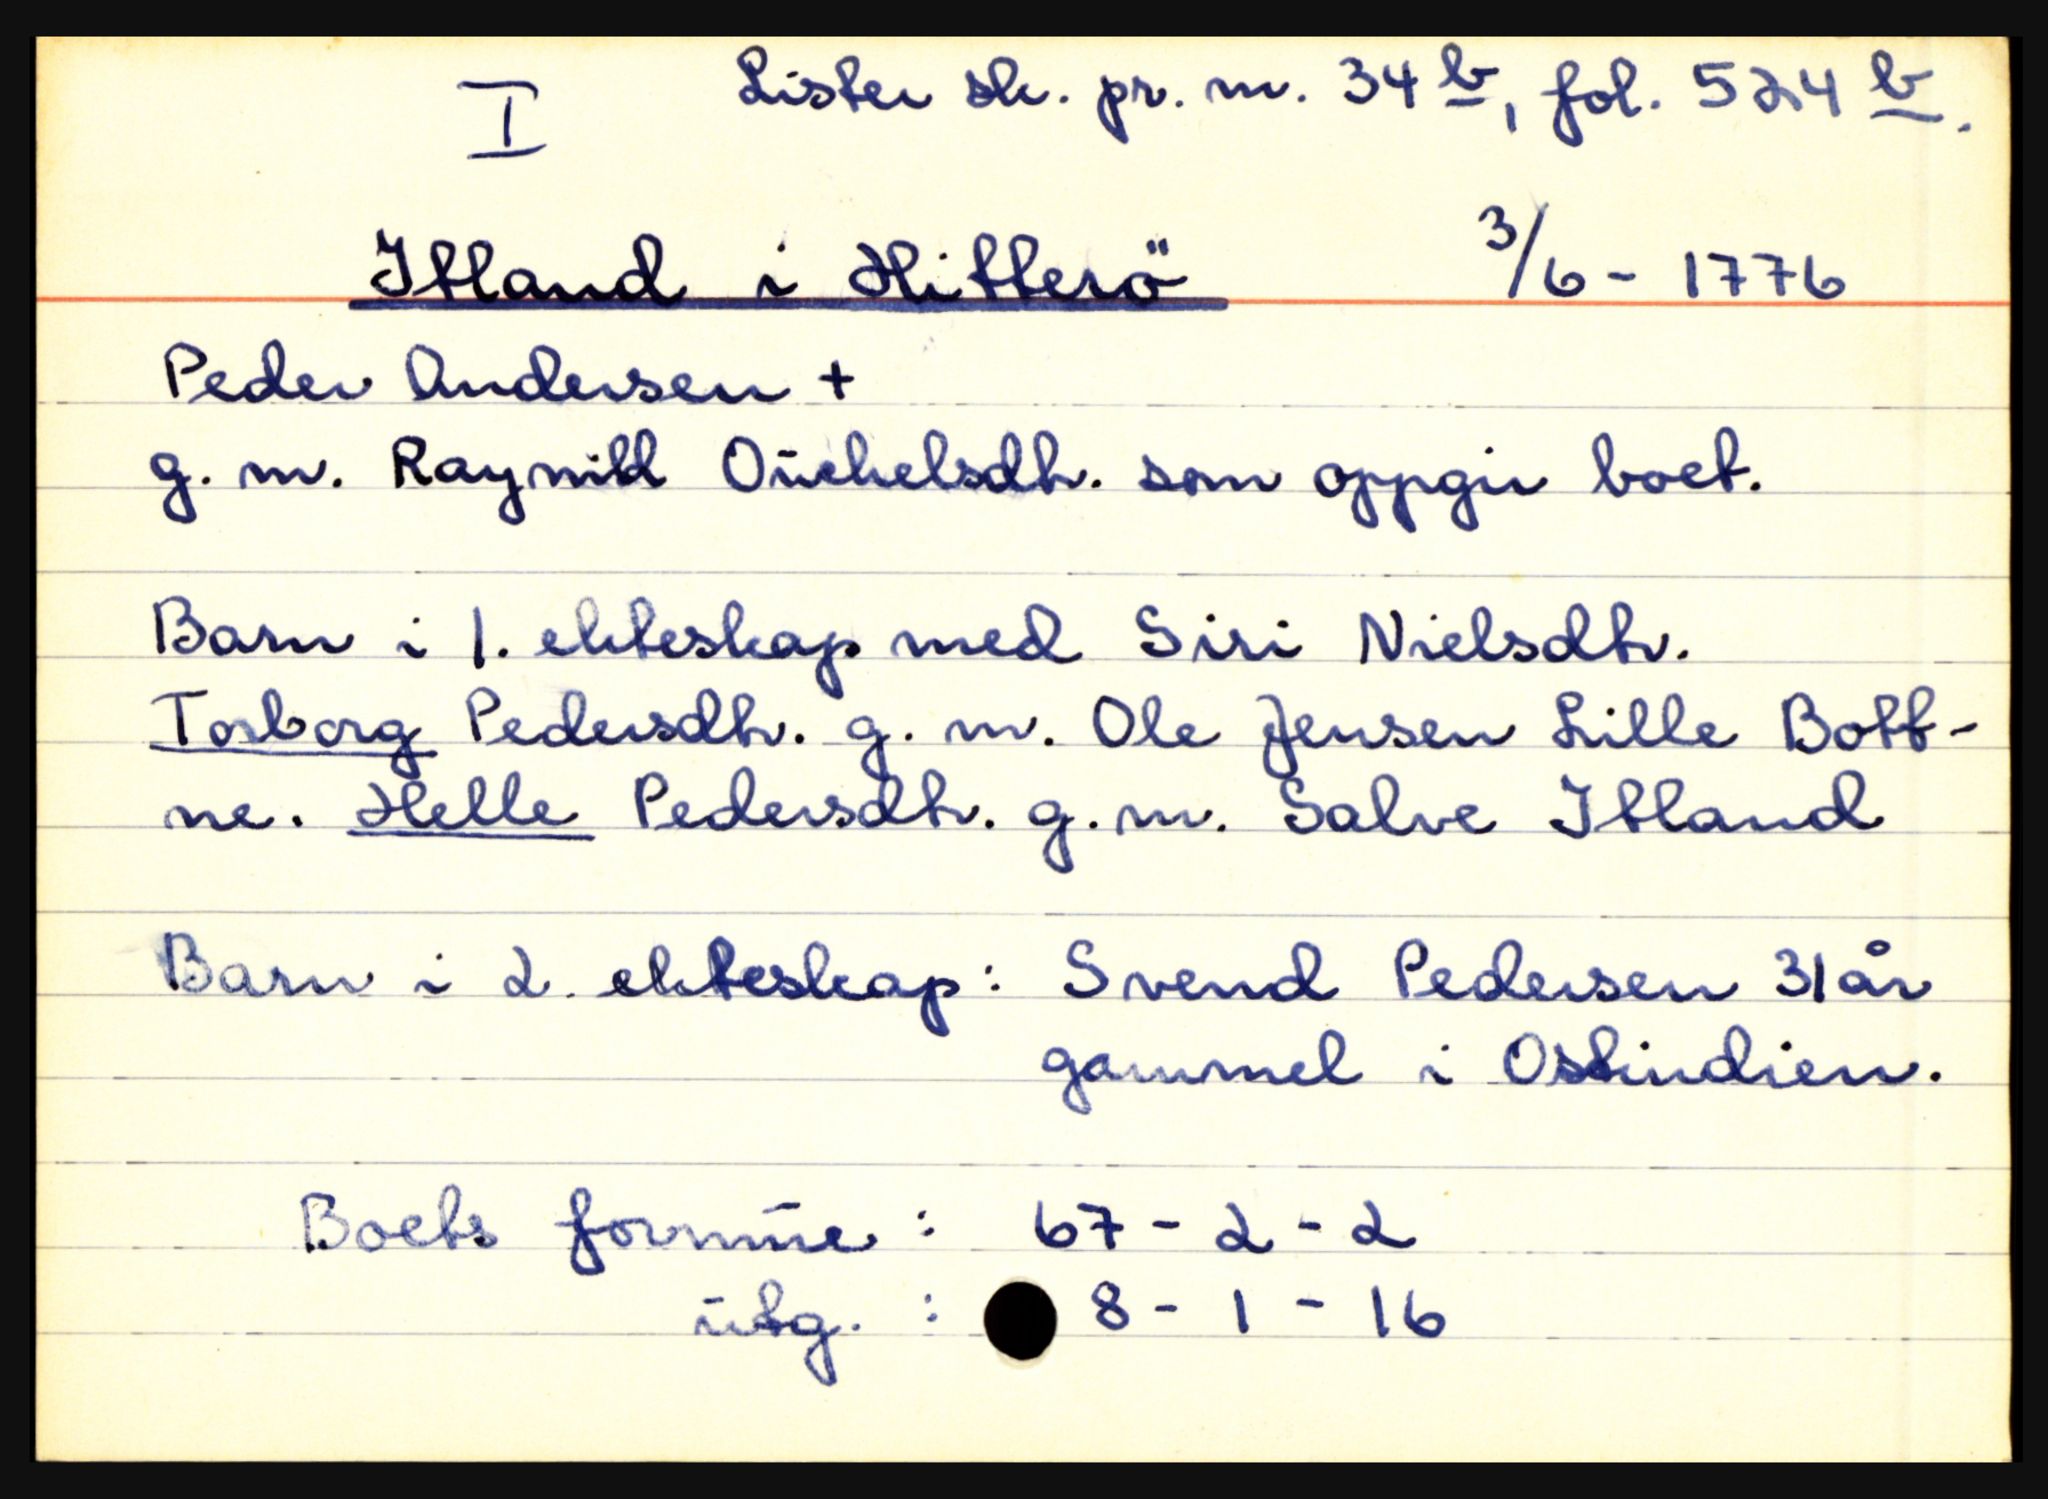 I Lister sk. pr. m. 34 b, fol. 524 b.
Itland i Hitterö 3/6 - 1776
Peder Andersen +
g. m. Raynild Oūkelsdtr. som oppgir boet.
Barn i 1. ekteskap med Siri Nielsdtr.
Torborg Pedersdtr. g. m. Ole Jensen Lille Bott-
ne. Helle Pedersdtr. g. m. Salve Itland
Barn i 2. ekteskap: Svend Pedersen 31 år
gammel i Ostindien.
Boets formūe : 67 - 2 - 2
ūtg. : 8 - 1 - 16